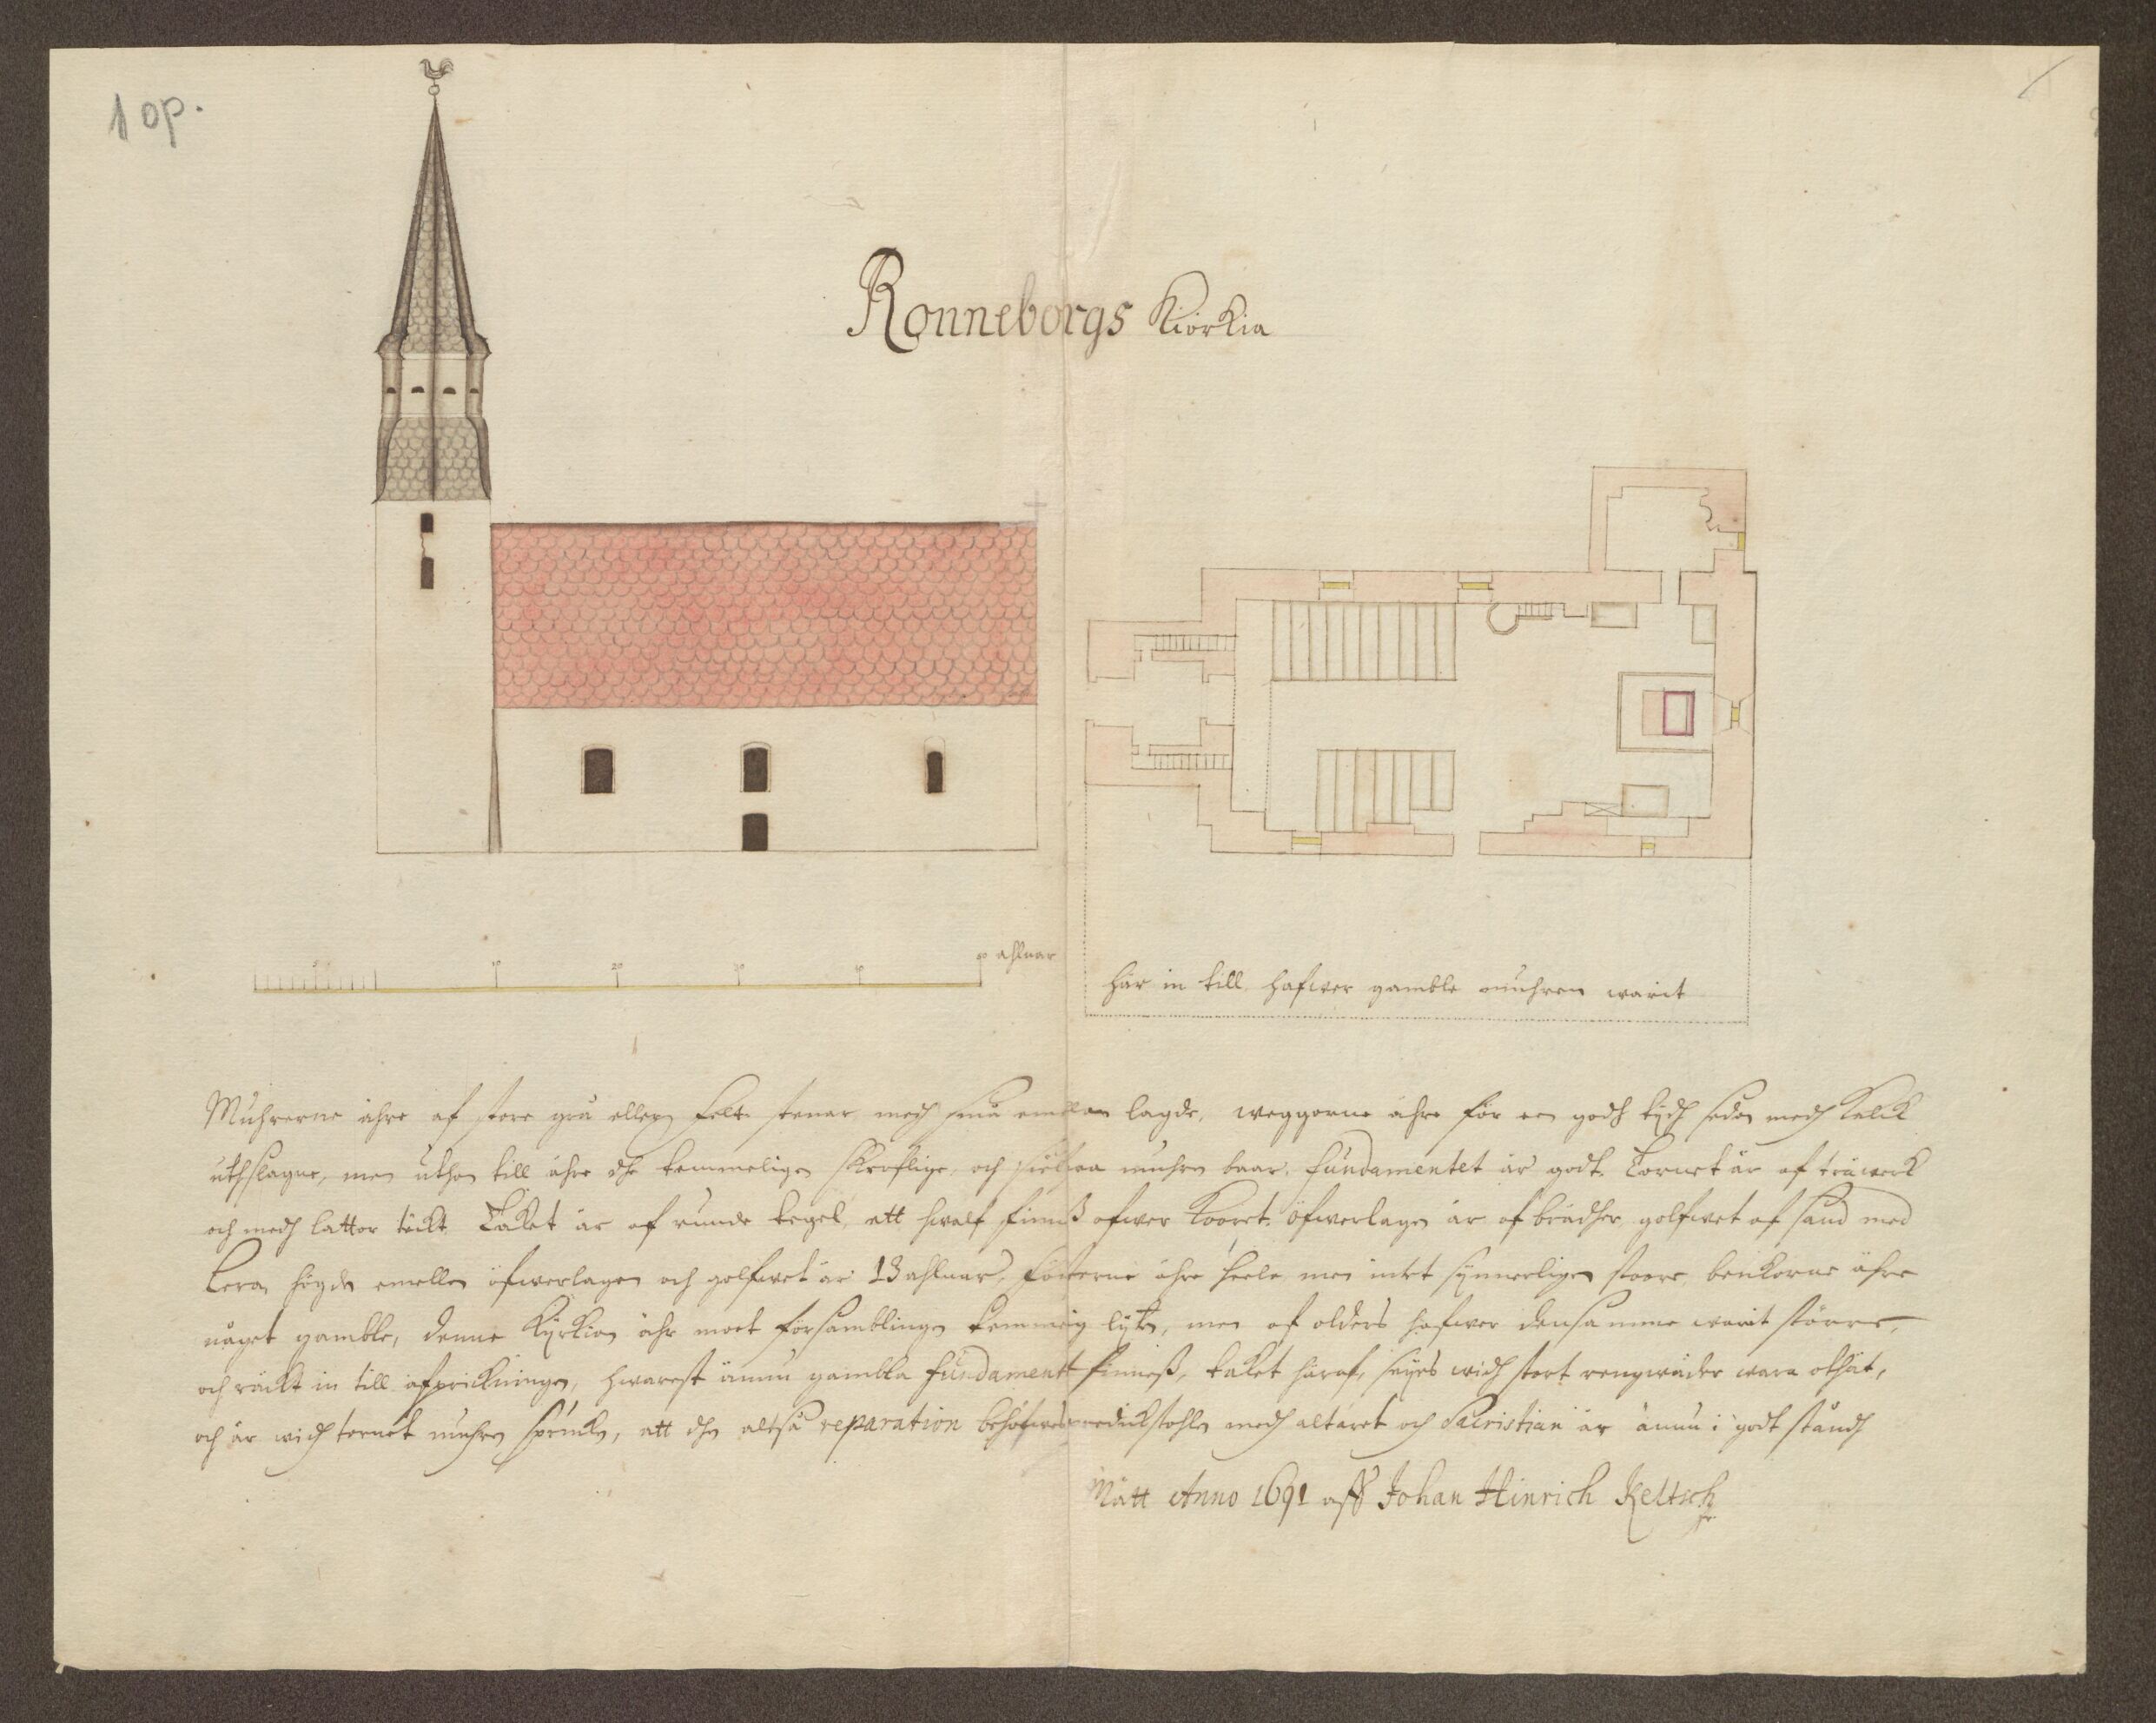 10p.
Ronneborgs Kiörkia
5 10 20 30 40 50 ahlnar
här in till hafwer gamble muhren warit
Muhrerne ähre af store grå eller felt stenar medh små emellan lagde, weggorne ähre för een godh tijdh sedan medh Kalck
uthslagne, men uthan till ähre dhe temmeligen skröflige, och muhren baar. fundamentet är godt. Tornet är af träwerk
och medh lattor täckt. Taket är af runde tegel, ett hwalf finnß ofwer Kooret. öfwerlagen är af brädher, golfwet af sand med
Lera, högden emellan öfwerlagen och golfwet är 13 ahlnar, fönterne ähre heele, men intet synnerligen stoore, benkorne ähre
något gamble, denne Kyrkian ähr moet församblingen temmelig lijten, men af olders hafwer densamme warit större,
och räckt in till afprickningen, hwarest ännu gambla fundamentt finneß, taket häraf, säijes widh stort rengwäder wara othät,
och är widh tornet muhren, att dhen altså reparation behöfwes predickstohlen medh altaret och Sacristian är ännu i godt ståndh
Mätt Anno 1691 aff Johan Hinrich Keltsch